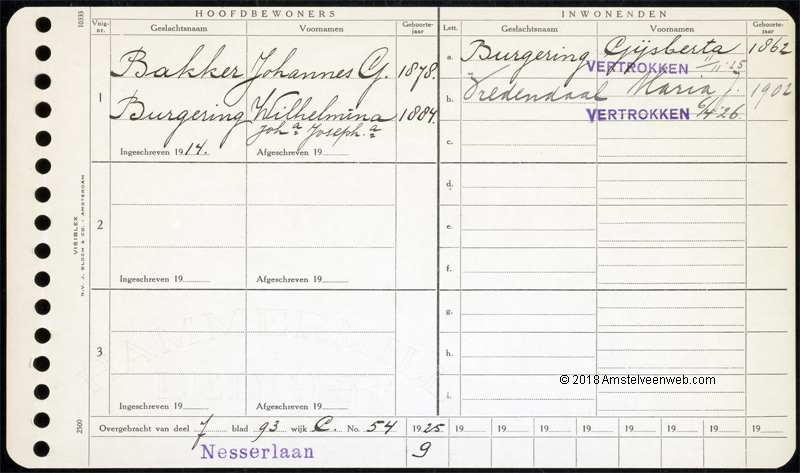 HOOFDBEWONERS
Volg-nr. Geslachtsnaam Voornamen Geboorte-jaar
1 Bakker Johannes G. 1878.
Burgering Wilhelmina 1884.
Joh.a Joseph.a
Ingeschreven 1914. Afgeschreven 19
2
Ingeschreven 19 Afgeschreven 19
3
Ingeschreven 19 Afgeschreven 19
INWONENDEN
Lett. Geslachtsnaam Voornamen Geboorte-jaar
a. Burgering Gijsberta 1862
VERTROKKEN 11/11-25
b. Vredendaal Maria J. 1902
VERTROKKEN 6/4 26.
c.
d.
e.
f.
g.
h.
i.
© 2018 Amstelveenweb.com
Overgebracht van deel 7 blad 93 wijk C. No. 54 1925. 19 19 19 19 19 19
Nesserlaan 9
10333
VISIBLEX
N.V. J. BLOCH & CO. - AMSTERDAM
2500